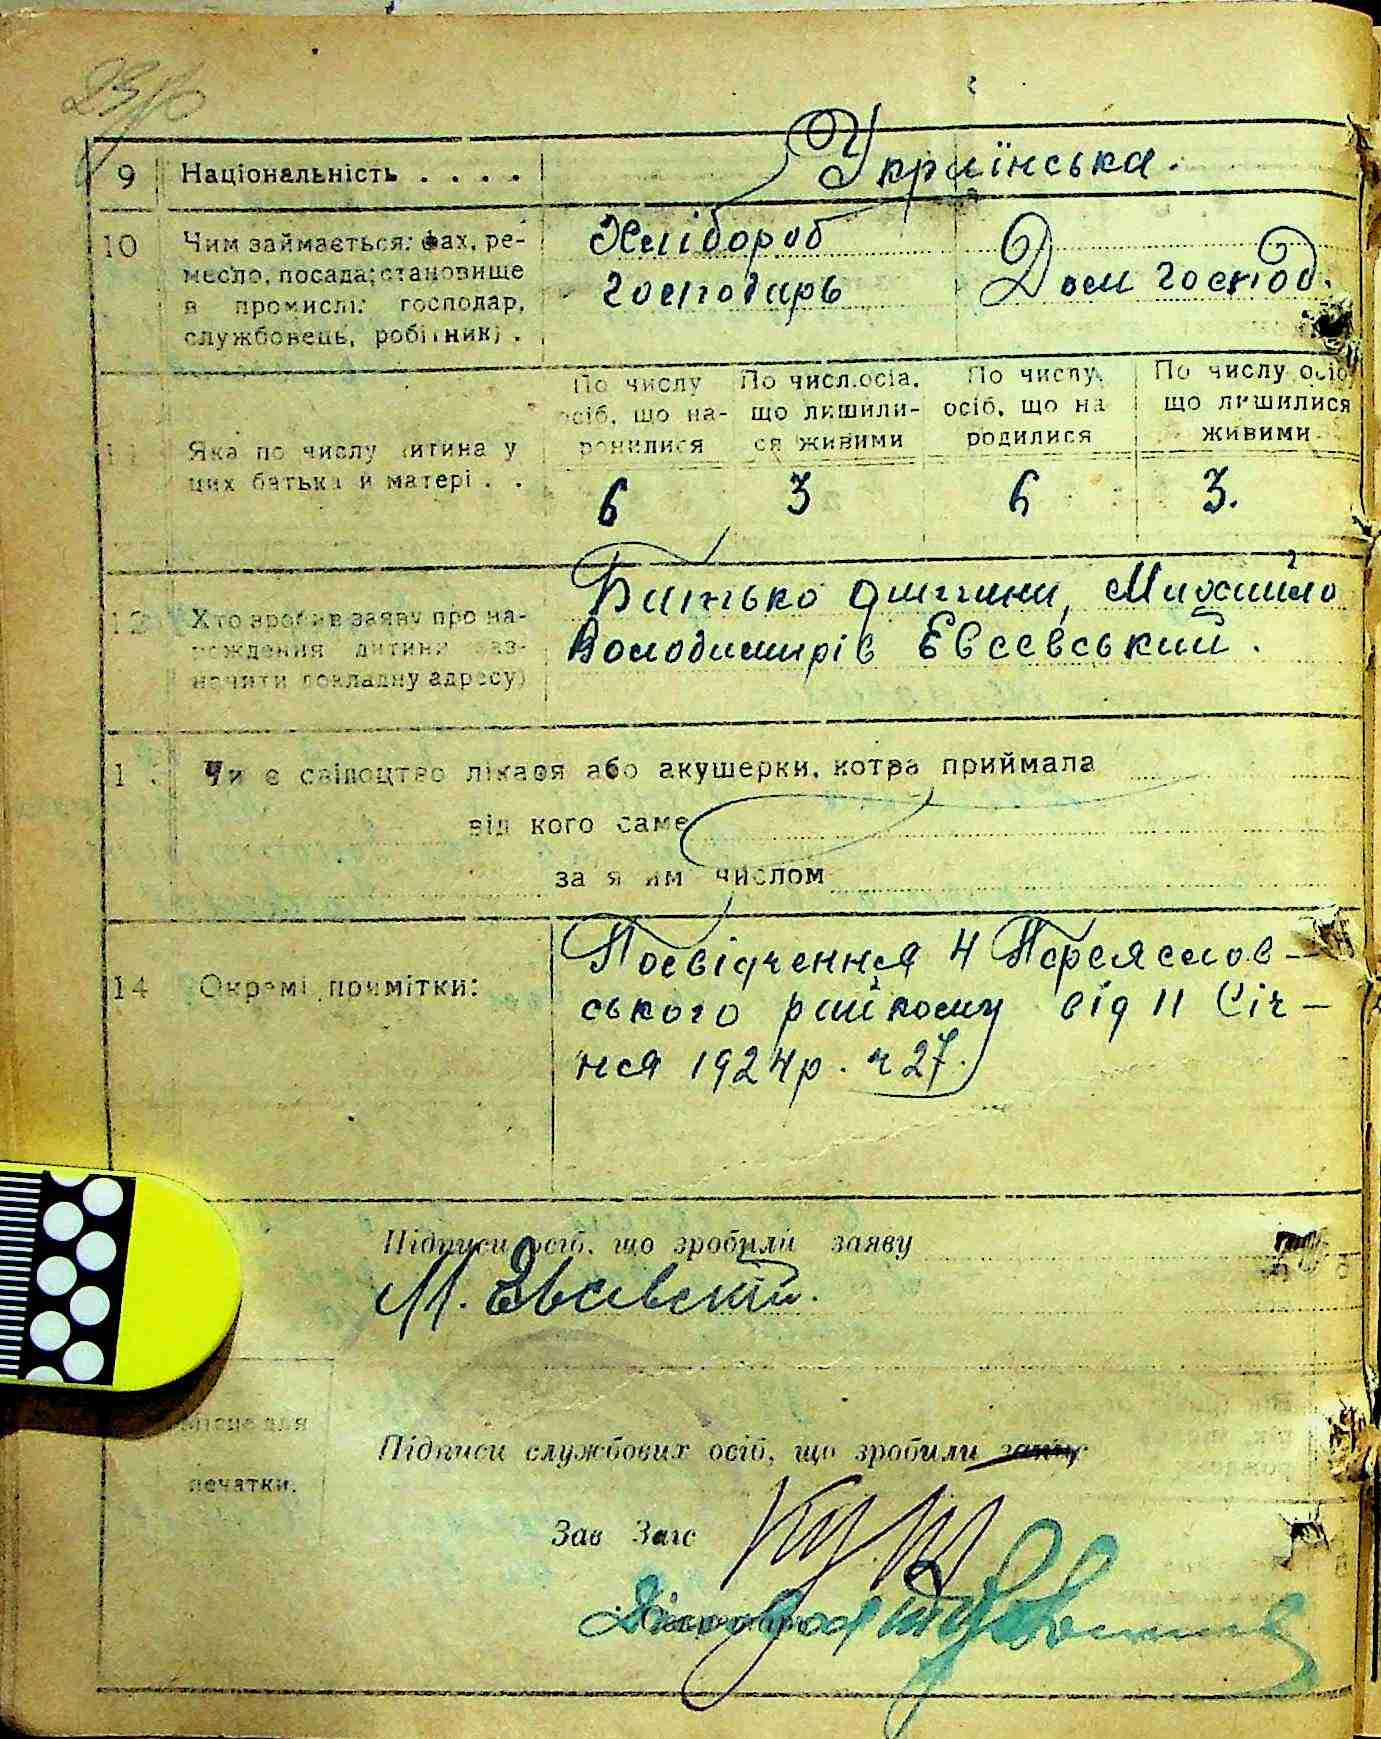 9 Національність . . . . Українська.
10 Чим займається: фах, ре-
месло, посада; становище
в промислі: господар,
службовець, робітник) .
Хлібороб
господарь
Дом господ.
По числу осіб, що на-родилися
По числ.осіб, що лишили-ся живими
По числу осіб, що на родилися
По числу осіб, що лишилися живими
11 Яка по числу дитина у
цих батька й матері . .
6 3 6 3.
12 Хто зробив заяву про на-
рождення дитини заз-
начити докладну адресу)
Батько дитини, Михайло
Володимирів Евсевський.
13 Чи є свідоцтво лікаря або акушерки, котра приймала
від кого саме
за яким числом
14 Окремі примітки:
Посвідчення Ч Переяслов-
ського райкому від 11 Січ-
ня 1924р. ч 27.
Підписи осіб, що зробили заяву
М. Евсевский.
Місце для
печатки.
Підписи службових осіб, що зробили запис
Зав Загс
Діловод